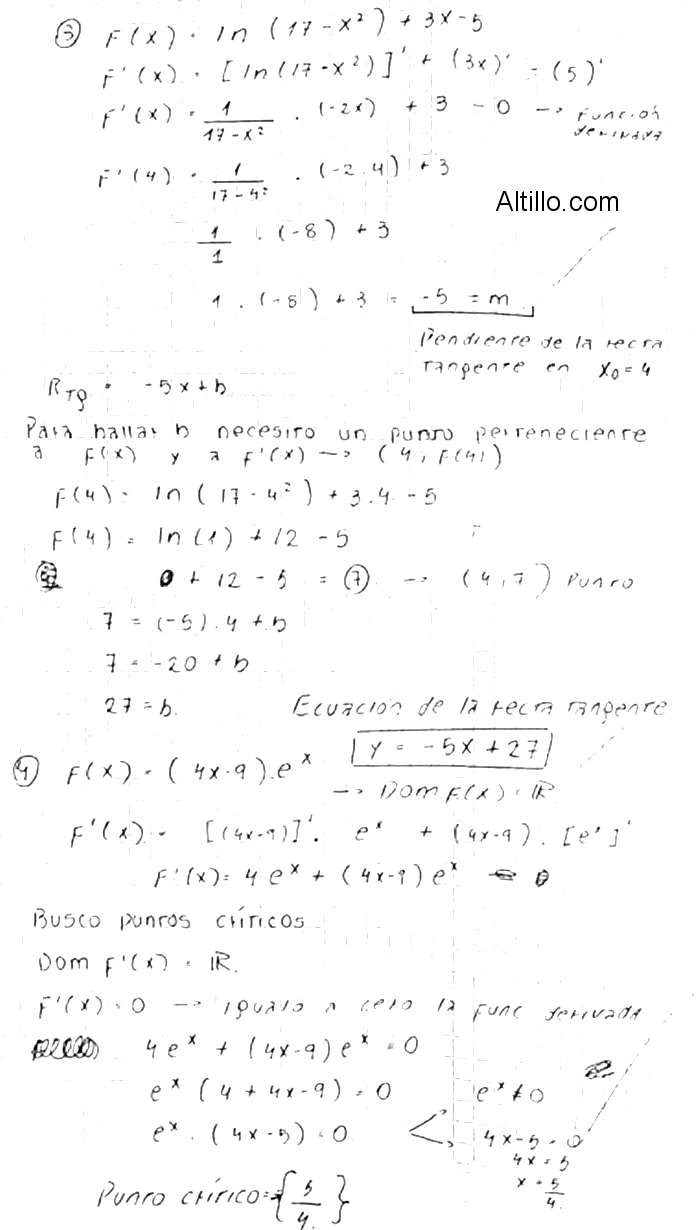 ③ F(x) = ln (17-x²) + 3x-5
F'(x) = [ln(17-x²)]' + (3x)' - (5)'
F'(x) = 1/(17-x²) . (-2x) + 3 - 0 → Función derivada
F'(4) = 1/(17-4²) . (-2.4) + 3
Altillo.com
1/1 . (-8) + 3
1 . (-8) + 3 = -5 = m
Pendiente de la recta
tangente en x₀=4
R_Tg = -5x+b
Para hallar b necesito un punto perteneciente
a F(x) y a F'(x) → (4, F(4))
F(4) = ln(17-4²) + 3.4 - 5
F(4) = ln(1) + 12 - 5
0 + 12 - 5 = ⑦ → (4,7) Punto
7 = (-5).4 + b
7 = -20 + b
27 = b.
Ecuación de la recta tangente
y = -5x + 27
④ F(x) = (4x-9).e^x
→ Dom F(x) = IR
F'(x) = [(4x-9)]'. e^x + (4x-9) . [e^x]'
F'(x) = 4e^x + (4x-9)e^x
Busco puntos críticos
Dom F'(x) = IR.
F'(x) = 0 → igualo a cero la func derivada
4e^x + (4x-9)e^x = 0
e^x (4 + 4x-9) = 0
e^x ≠ 0
e^x . (4x-5) = 0
4x-5 = 0
4x = 5
x = 5/4.
Punto crítico = {5/4.}